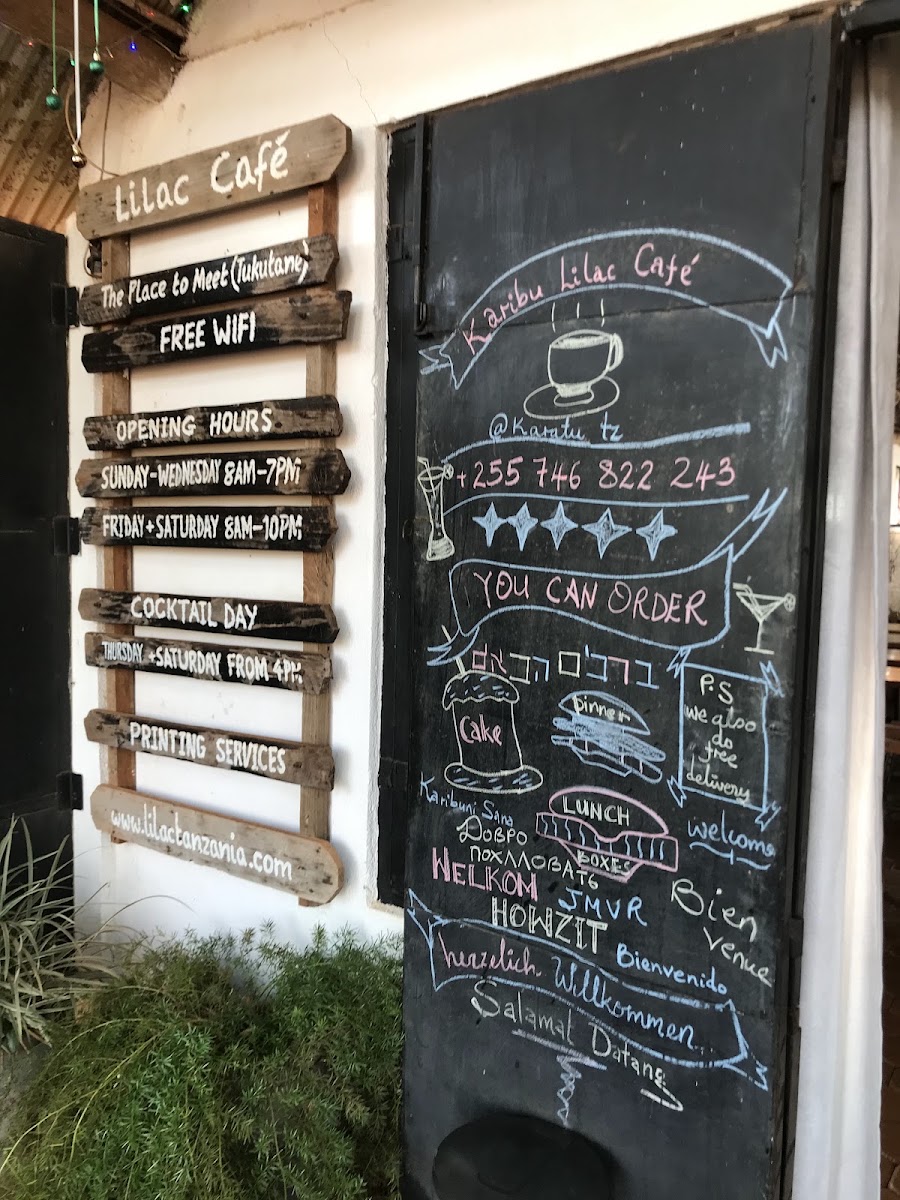 Lilac Café
The Place to Meet (Tukutane)
FREE WIFI
OPENING HOURS
SUNDAY-WEDNESDAY 8AM-7PM
FRIDAY + SATURDAY 8AM-10PM
COCKTAIL DAY
THURSDAY + SATURDAY FROM 4PM
PRINTING SERVICES
www.lilactanzania.com
Karibu Lilac Café
@Karatu tz
+255 746 822 243
YOU CAN ORDER
ברלים הבאם
Cake
Dinner
P.S
we also
do
free
delivery
Karibuni Sana
LUNCH
BOXES
welcome
ДОБРО
ПОХЛЛОВАТ6
WELKOM
JMVR
Bien
venue
HOWZIT
Bienvenido
herzelich Willkommen
Salamat Datang